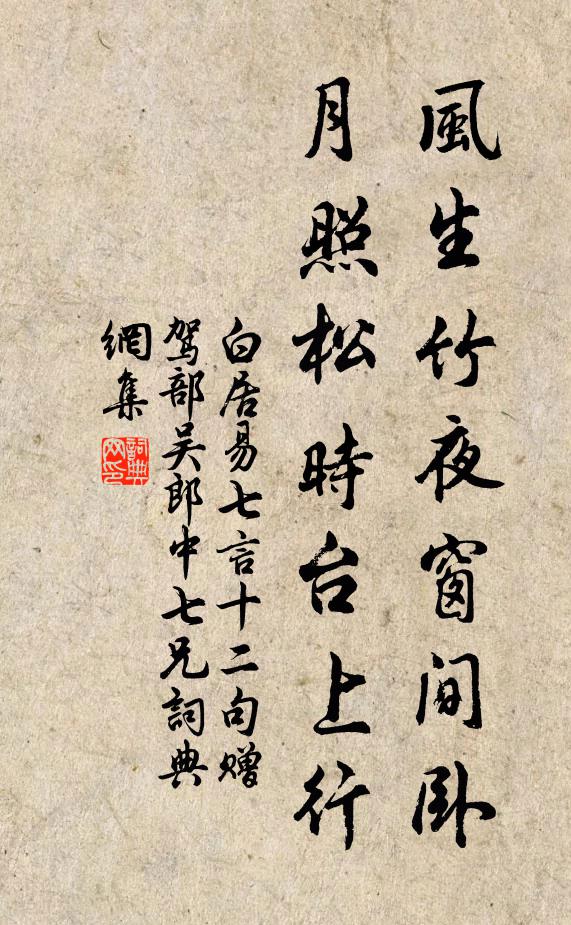 風生竹夜窗間卧
月照松時台上行
白居易七言十二句赠
駕部吴郎中七兄詞典
網集
詞典
网印